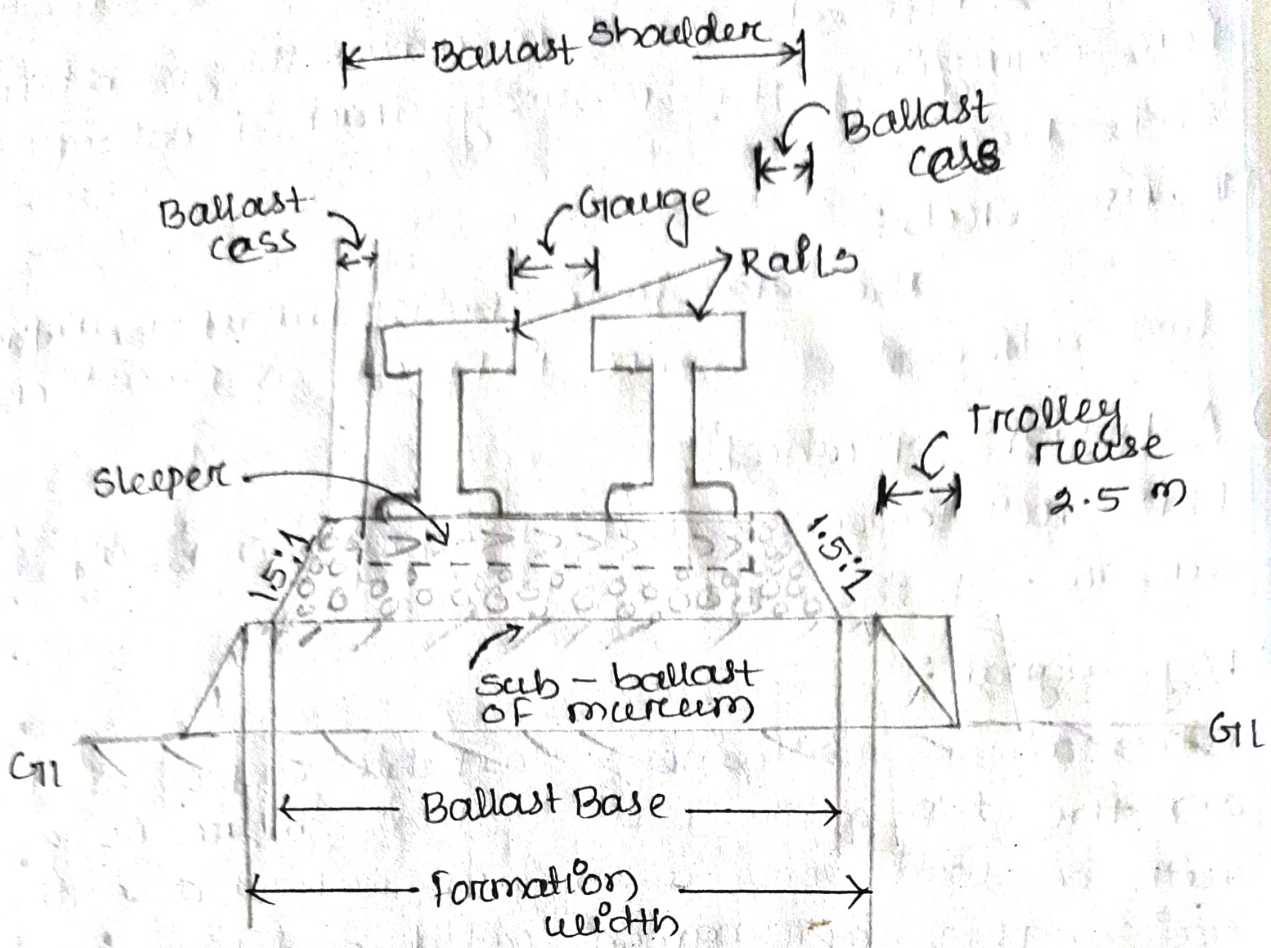 Ballast Shoulder
Ballast
cass
Ballast
cass
Gauge
Rails
Trolley
rease
2.5 m
Sleeper
1.5:1
1.5:1
sub-ballast
of mureum
GL
GL
Ballast Base
Formation
width